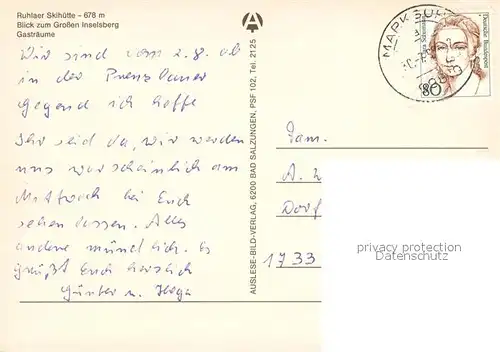 Ruhlaer Skihütte – 678 m
Blick zum Großen Inselsberg
Gasträume
Wir sind vom 2.8. ab
in der Prenzlauer
Gegend ich hoffe
Ihr seid da, wir werden
uns warscheinlich am
Mittwoch bei Euch
sehen lassen. Alles
andere mündlich. Es
grüßt Euch herzlich
Günter u. Helga
AUSLESE-BILD-VERLAG, 6200 BAD SALZUNGEN, PSF 102, Tel. 2125
MARKSUHL
Deutsche Bundespost
80
Fam.
A. Z
Dorf
1733
privacy protection
Datenschutz